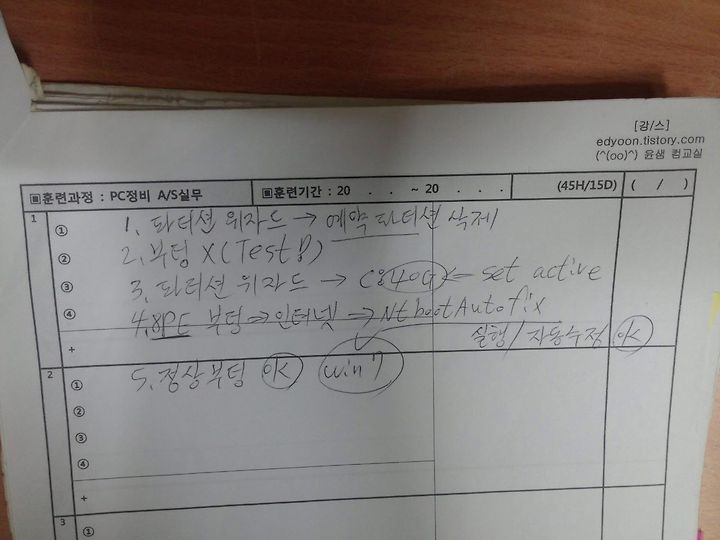 [강/스]
edyoon.tistory.com
(^(oo)^) 윤샘 컴교실
▣훈련과정 : PC정비 A/S실무 ▣훈련기간 : 20 . . ~ 20 . . . (45H/15D) ( / )
1
① 1. 파티션 위자드 → 예약 파티션 삭제
② 2. 부팅 X (Test
③ 3. 파티션 위자드 → C840G ← set active
④ 4. 8PE 부팅 → 인터넷 → NtbootAutofix
+ 실행/자동수정 OK
2
① 5. 정상부팅 OK win7
②
③
④
+
3
①